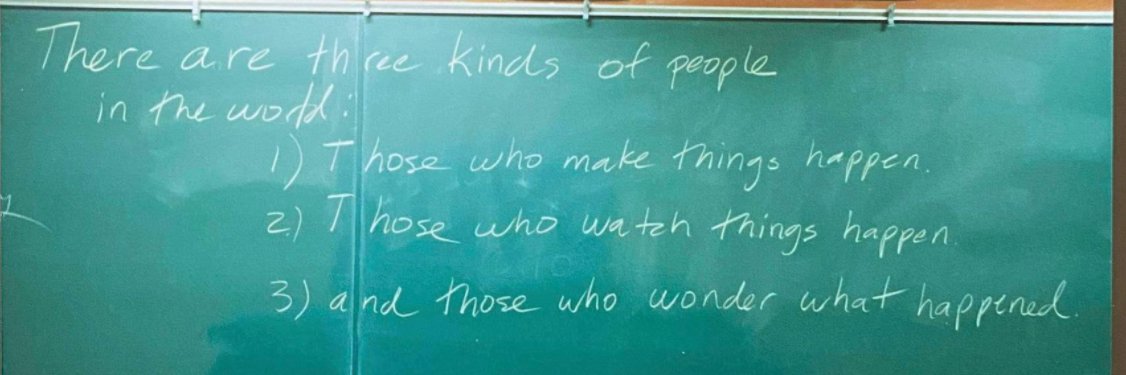 There are three kinds of people
in the world:
1) Those who make things happen.
2) Those who watch things happen.
3) and those who wonder what happened.